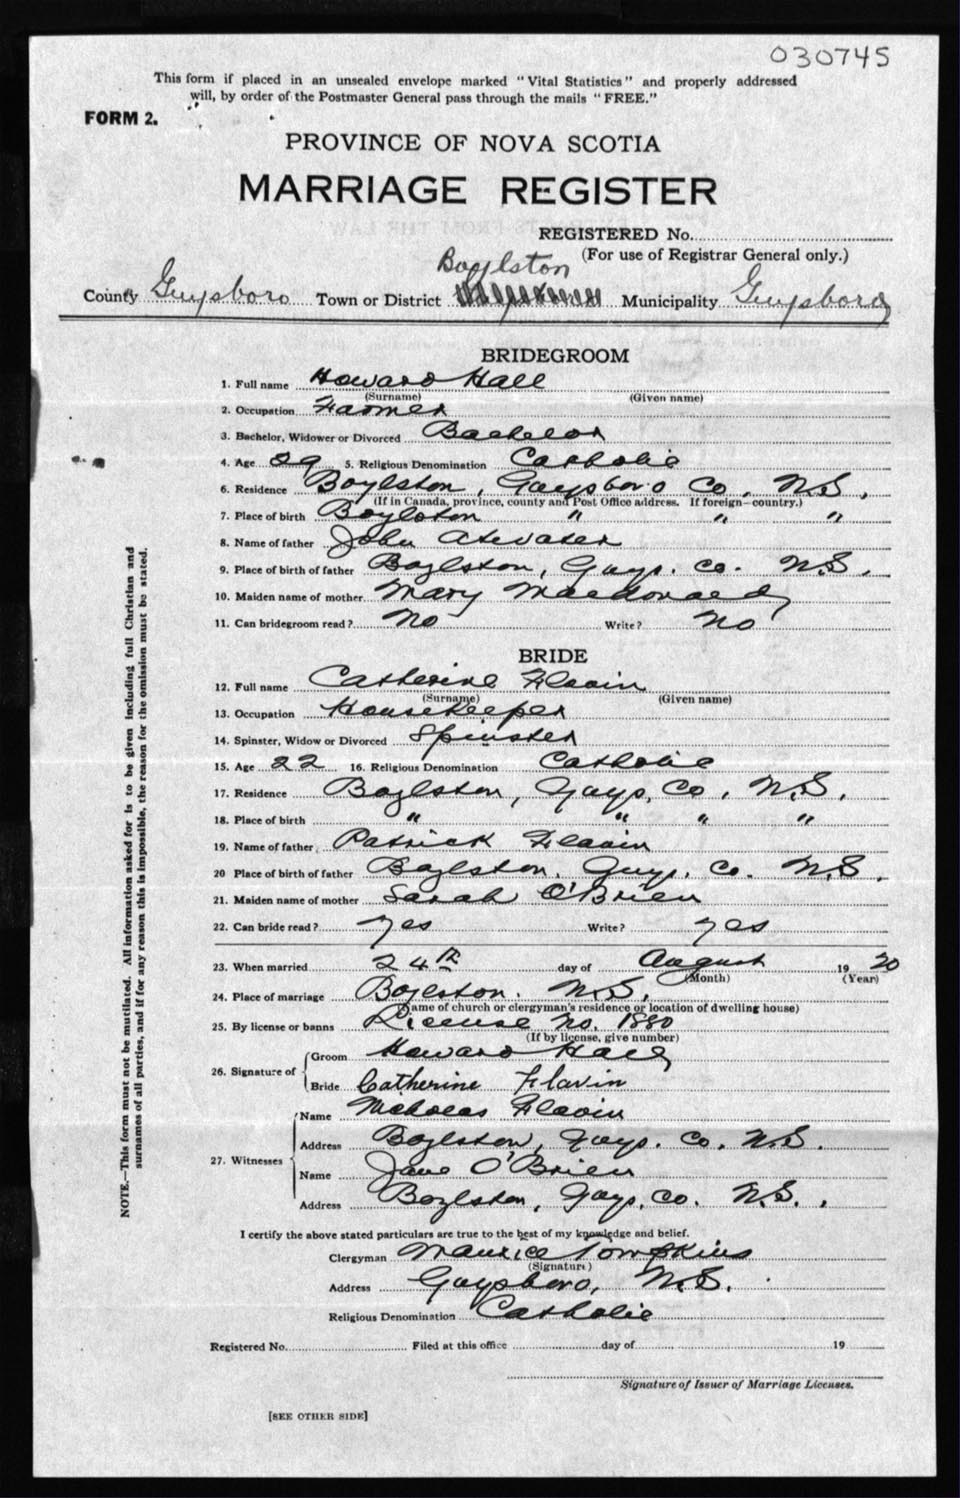 030745
This form if placed in an unsealed envelope marked "Vital Statistics" and properly addressed
will, by order of the Postmaster General pass through the mails "FREE."
FORM 2.
PROVINCE OF NOVA SCOTIA
MARRIAGE REGISTER
REGISTERED No.
(For use of Registrar General only.)
Boylston
County Guysboro Town or District Municipality Guysboro
BRIDEGROOM
1. Full name Howard Hall
(Surname) (Given name)
2. Occupation Farmer
3. Bachelor, Widower or Divorced Bachelor
4. Age 29 5. Religious Denomination Catholic
6. Residence Boylston, Guysboro Co, N.S.
(If in Canada, province, county and Post Office address. If foreign—country.)
7. Place of birth Boylston " " "
8. Name of father John Atwater
9. Place of birth of father Boylston, Guys. Co. N.S.
10. Maiden name of mother Mary Macdonald
11. Can bridegroom read? No Write? No
BRIDE
12. Full name Catherine Flavin
(Surname) (Given name)
13. Occupation Housekeeper
14. Spinster, Widow or Divorced Spinster
15. Age 22 16. Religious Denomination Catholic
17. Residence Boylston, Guys. Co, N.S.
18. Place of birth " " " "
19. Name of father Patrick Flavin
20 Place of birth of father Boylston, Guys. Co. N.S.
21. Maiden name of mother Sarah O'Brien
22. Can bride read? yes Write? yes
23. When married 24th day of August 1920
(Month) (Year)
24. Place of marriage Boylston. N.S.
(Name of church or clergyman's residence or location of dwelling house)
25. By license or banns License No. 1880
(If by license, give number)
26. Signature of Groom Howard Hall
Bride Catherine Flavin
27. Witnesses Name Nicholas Flavin
Address Boylston, Guys. Co. N.S.
Name Jane O'Brien
Address Boylston, Guys, Co. N.S.,
I certify the above stated particulars are true to the best of my knowledge and belief.
Clergyman Maurice Tompkins
(Signature)
Address Guysboro, N.S.
Religious Denomination Catholic
Registered No. Filed at this office day of 19
Signature of Issuer of Marriage Licenses.
[SEE OTHER SIDE]
NOTE.—This form must not be mutilated. All information asked for is to be given including full Christian and
surnames of all parties, and if for any reason this is impossible, the reason for the omission must be stated.